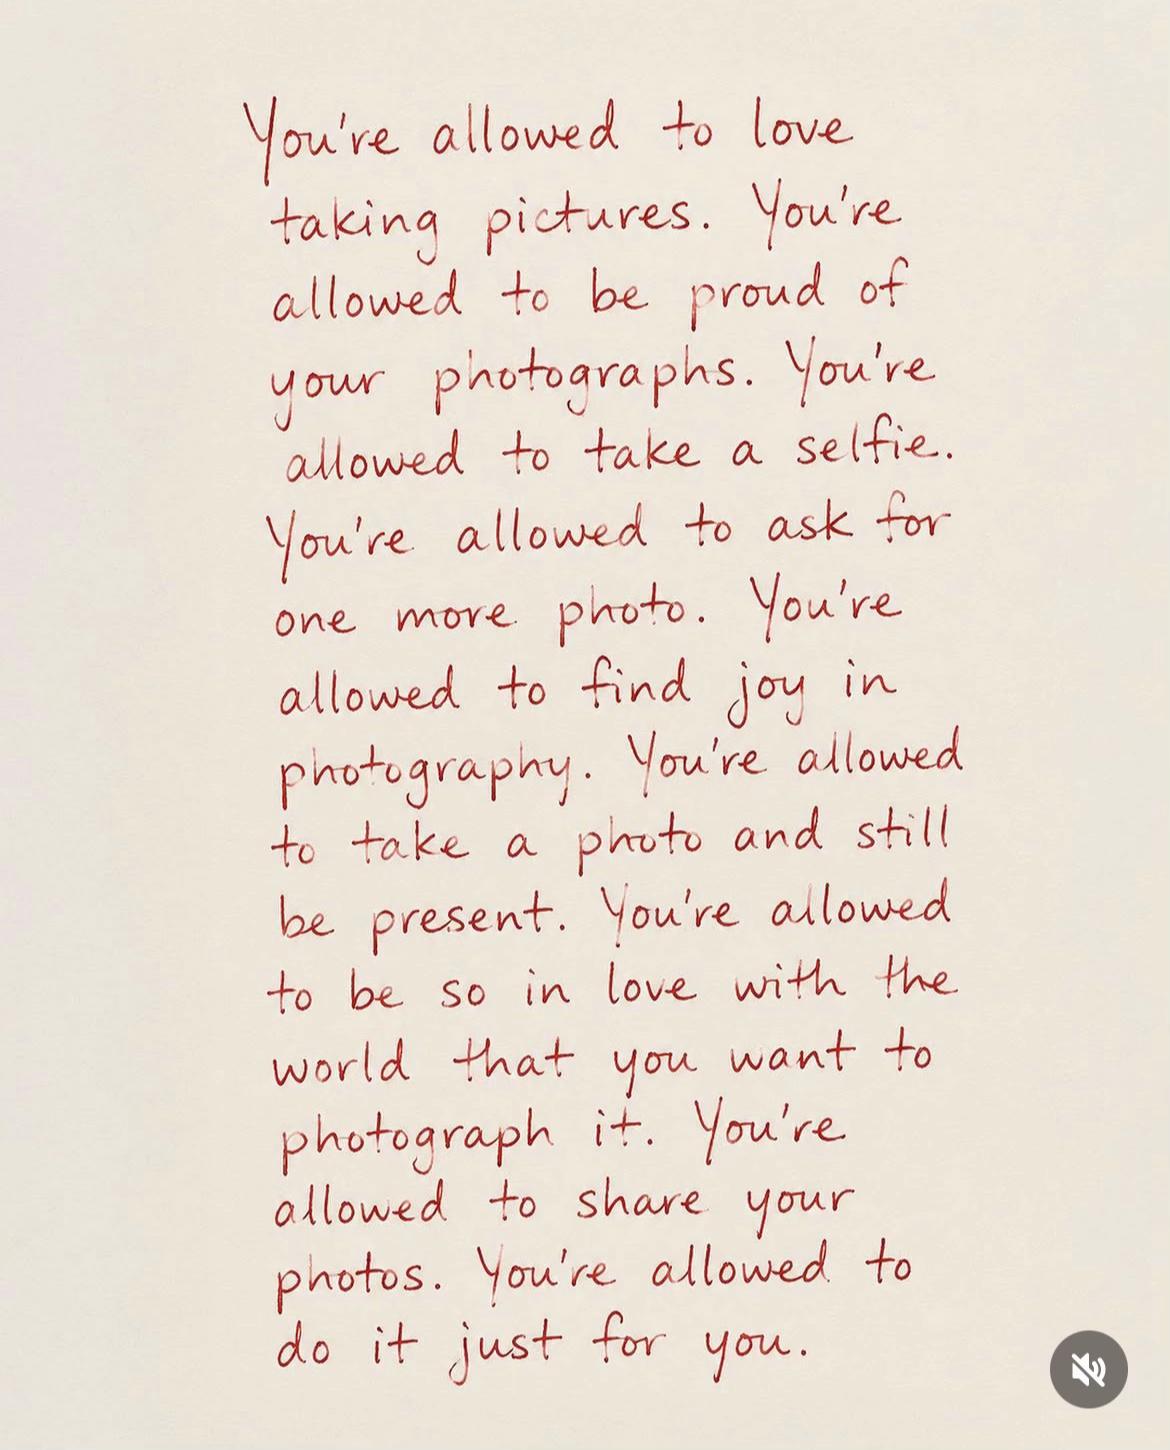 You're allowed to love
taking pictures. You're
allowed to be proud of
your photographs. You're
allowed to take a selfie.
You're allowed to ask for
one more photo. You're
allowed to find joy in
photography. You're allowed
to take a photo and still
be present. You're allowed
to be so in love with the
world that you want to
photograph it. You're
allowed to share your
photos. You're allowed to
do it just for you.